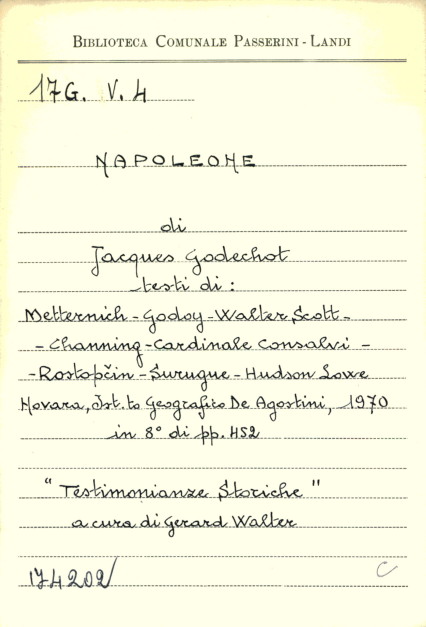 BIBLIOTECA COMUNALE PASSERINI - LANDI
17G. V. 4
NAPOLEONE
di
Jacques Godechot
testi di :
Metternich - Godoy - Walter Scott -
- Channing - Cardinale Consalvi -
- Rostopčin - Surugue - Hudson Lowe
Novara, Ist.to Geografico De Agostini, 1970
in 8° di pp. 452
"Testimonianze Storiche"
a cura di Gerard Walter
174202
C